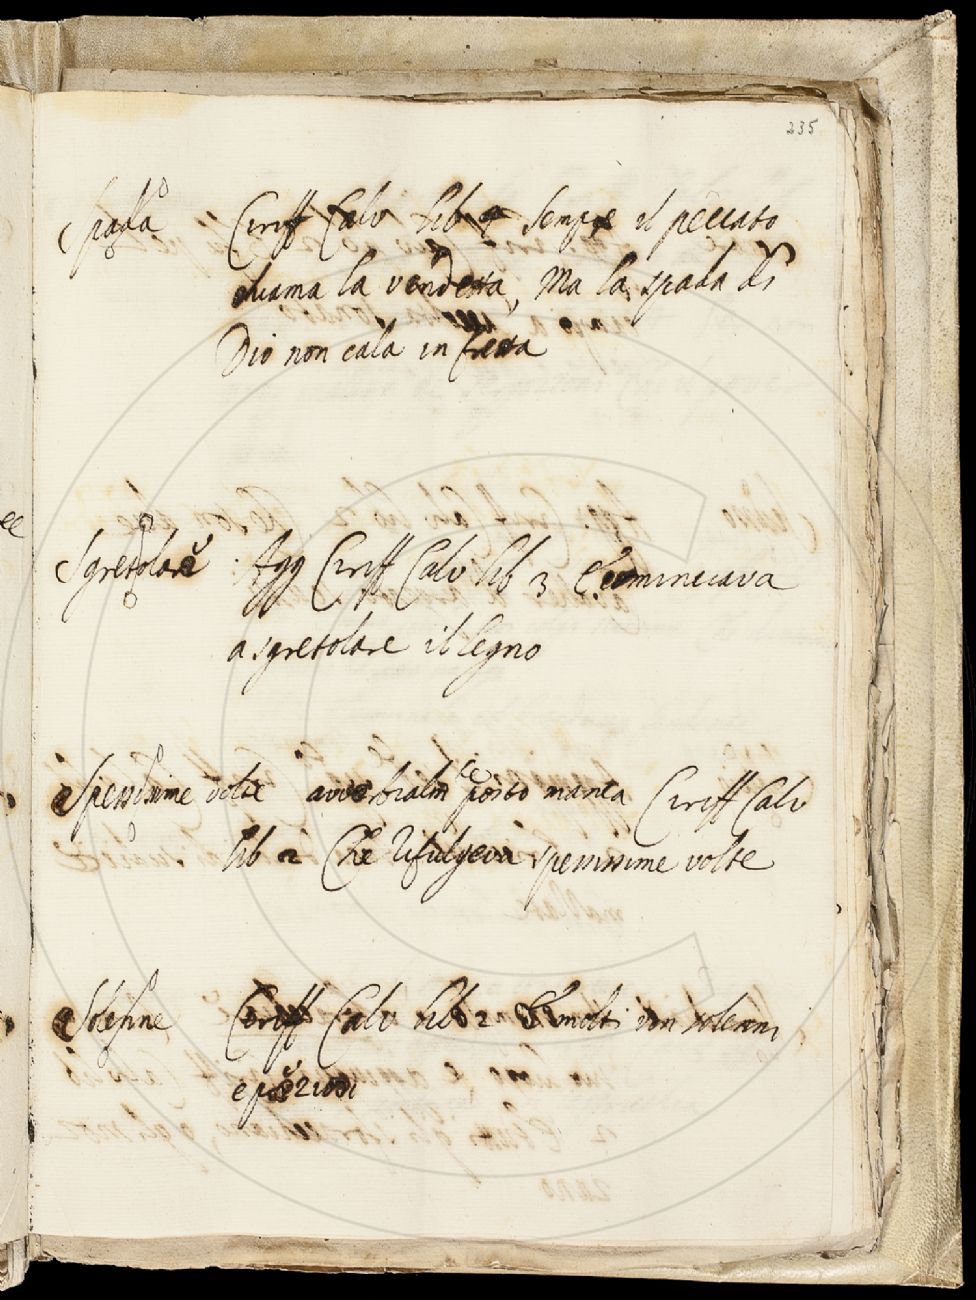 235
Spada Ciriff Calv lib 2 Sempre il peccato
chiama la vendetta, Ma la spada di
Dio non cala in fretta
Sgretolare Agg Ciriff Calv lib 3 E cominciava
a sgretolare il legno
Spessissime volte avverbialm posto manca Ciriff Calv
lib 2 Che rifulgeva spessissime volte
Solenne Ciriff Calv lib 2 E molti vin solenni
e preziosi